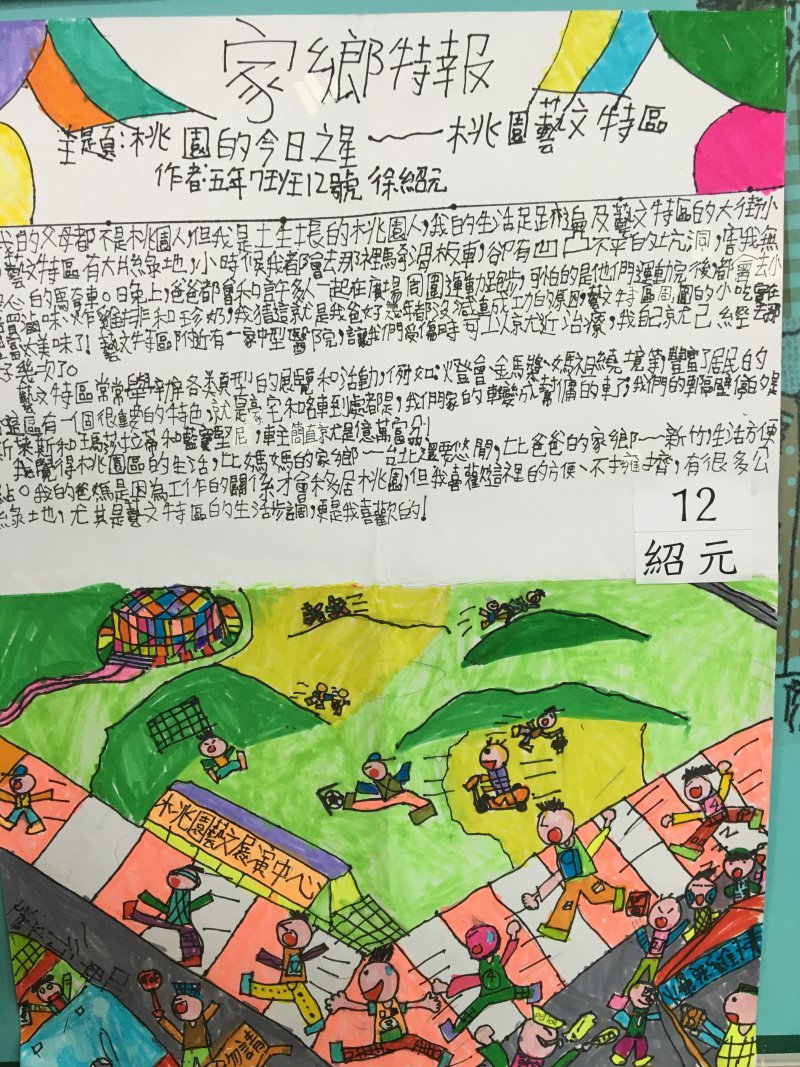 家鄉特報
主題:桃園的今日之星——桃園藝文特區
作者:五年7班12號 徐紹元
我的父母都不是桃園人,但我是土生土長的桃園人,我的生活足跡遍及藝文特區的大街小
藝文特區有大片綠地,小時候我都會去那裡騎滑板車,卻有凹凸不平的坑洞,害我無
的馬奇車。晚上,爸爸都會和許多人一起在廣場周圍運動跑步,可怕的是他們運動完後都會去小
滷味、炸雞排和珍奶,我猜這就是我爸好幾年都沒減重成功的原因,藝文特區周圍的小吃實在
當太美味了!藝文特區附近有一家中型醫院,讓我們受傷時可以就近治療,我自己就已經去
好幾次了。
藝文特區常常舉辦各類型的展覽和活動,例如:燈會、金馬獎、媽祖繞境等,豐富了居民的
特區有一個很重要的特色,就是豪宅和名車到處都是,我們家的車變成幫傭的車了,我們的車隔壁停的是
斯萊斯和瑪莎拉蒂和藍寶堅尼,車主簡直就是億萬富翁!
我覺得桃園區的生活,比媽媽的家鄉——台北還要悠閒,比爸爸的家鄉——新竹,生活方便
點。我的爸媽是因為工作的關係才會移居桃園,但我喜歡這裡的方便、不擁擠,有很多公
綠地,尤其是藝文特區的生活步調,更是我喜歡的!
12
紹元
桃園藝文展演中心